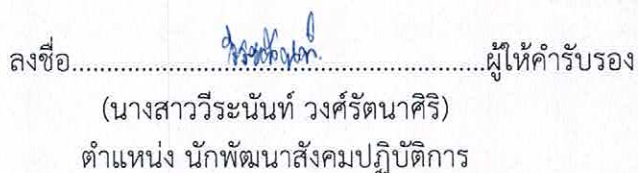 ลงชื่อ................................................................ผู้ให้คำรับรอง
(นางสาววีระนันท์ วงศ์รัตนาศิริ)
ตำแหน่ง นักพัฒนาสังคมปฏิบัติการ